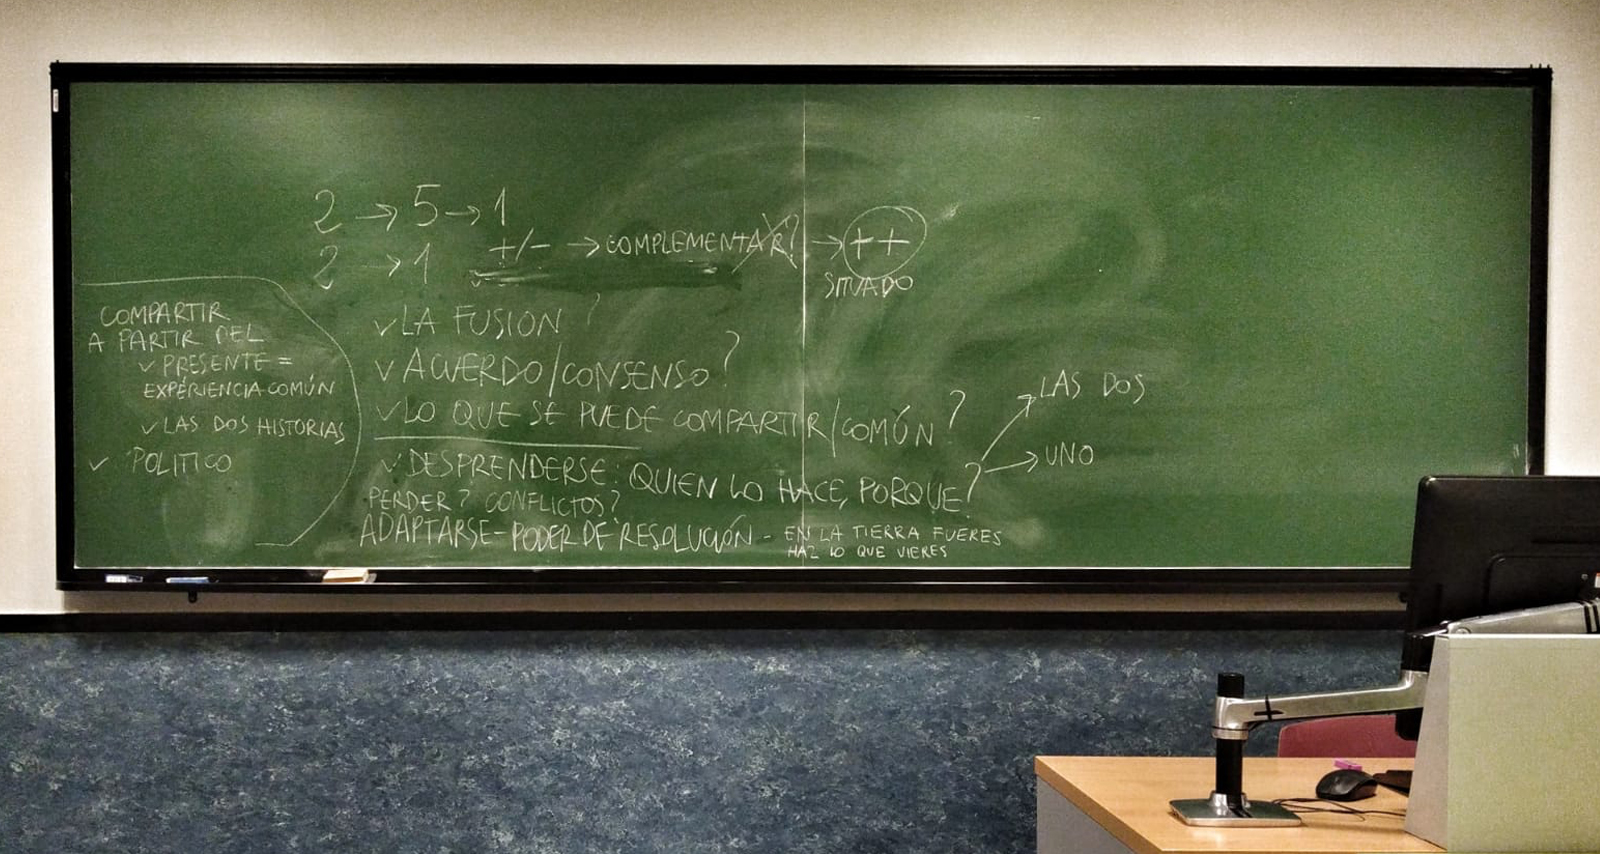 2 → 5 → 1
2 → 1
+/- → COMPLEMENTAR? → ++
SITUADO
COMPARTIR
A PARTIR DEL
✓ PRESENTE =
EXPERIENCIA COMÚN
✓ LAS DOS HISTORIAS
✓ POLITICO
✓ LA FUSION ?
✓ ACUERDO/CONSENSO ?
✓ LO QUE SE PUEDE COMPARTIR/COMÚN ?
✓ DESPRENDERSE: QUIEN LO HACE, PORQUE?
→ LAS DOS
→ UNO
PERDER? CONFLICTOS?
ADAPTARSE - PODER DE RESOLUCIÓN - EN LA TIERRA FUERES
HAZ LO QUE VIERES